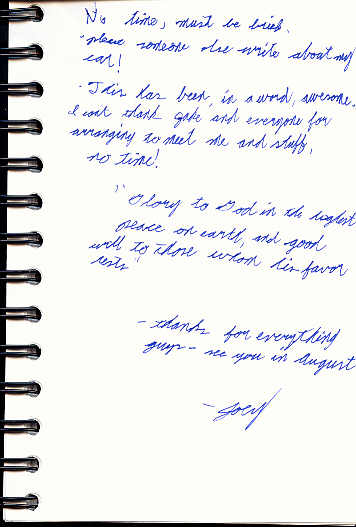 No time, must be brief.
- please someone else write about my
ear!
- This has been, in a word, awesome.
I can't thank gabe and everyone for
arranging to meet me and stuff,
no time!
" Glory to God in the highest
peace on earth, and good
will to those whom his favor
rests"
- thanks for everything
guys - see you in August
- Joey